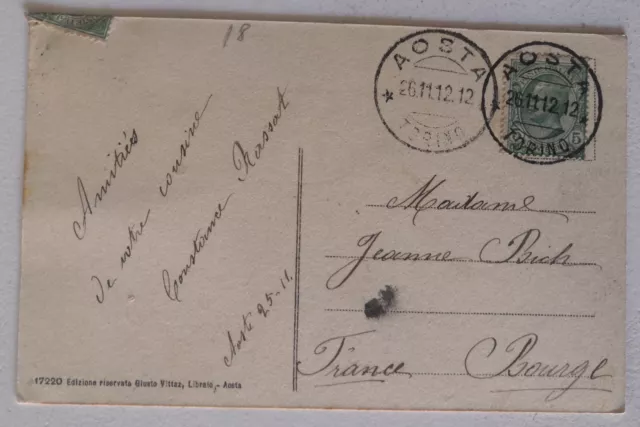 18
AOSTA
26.11.12.12
TORINO
AOSTA
26.11.12.12
TORINO
5
Amitiés
de votre cousine
Constance Rassat
Aoste 25-11.
Madame
Jeanne Bich
France Bourge
17220 Edizione riservata Giusto Vittaz, Libraio, - Aosta